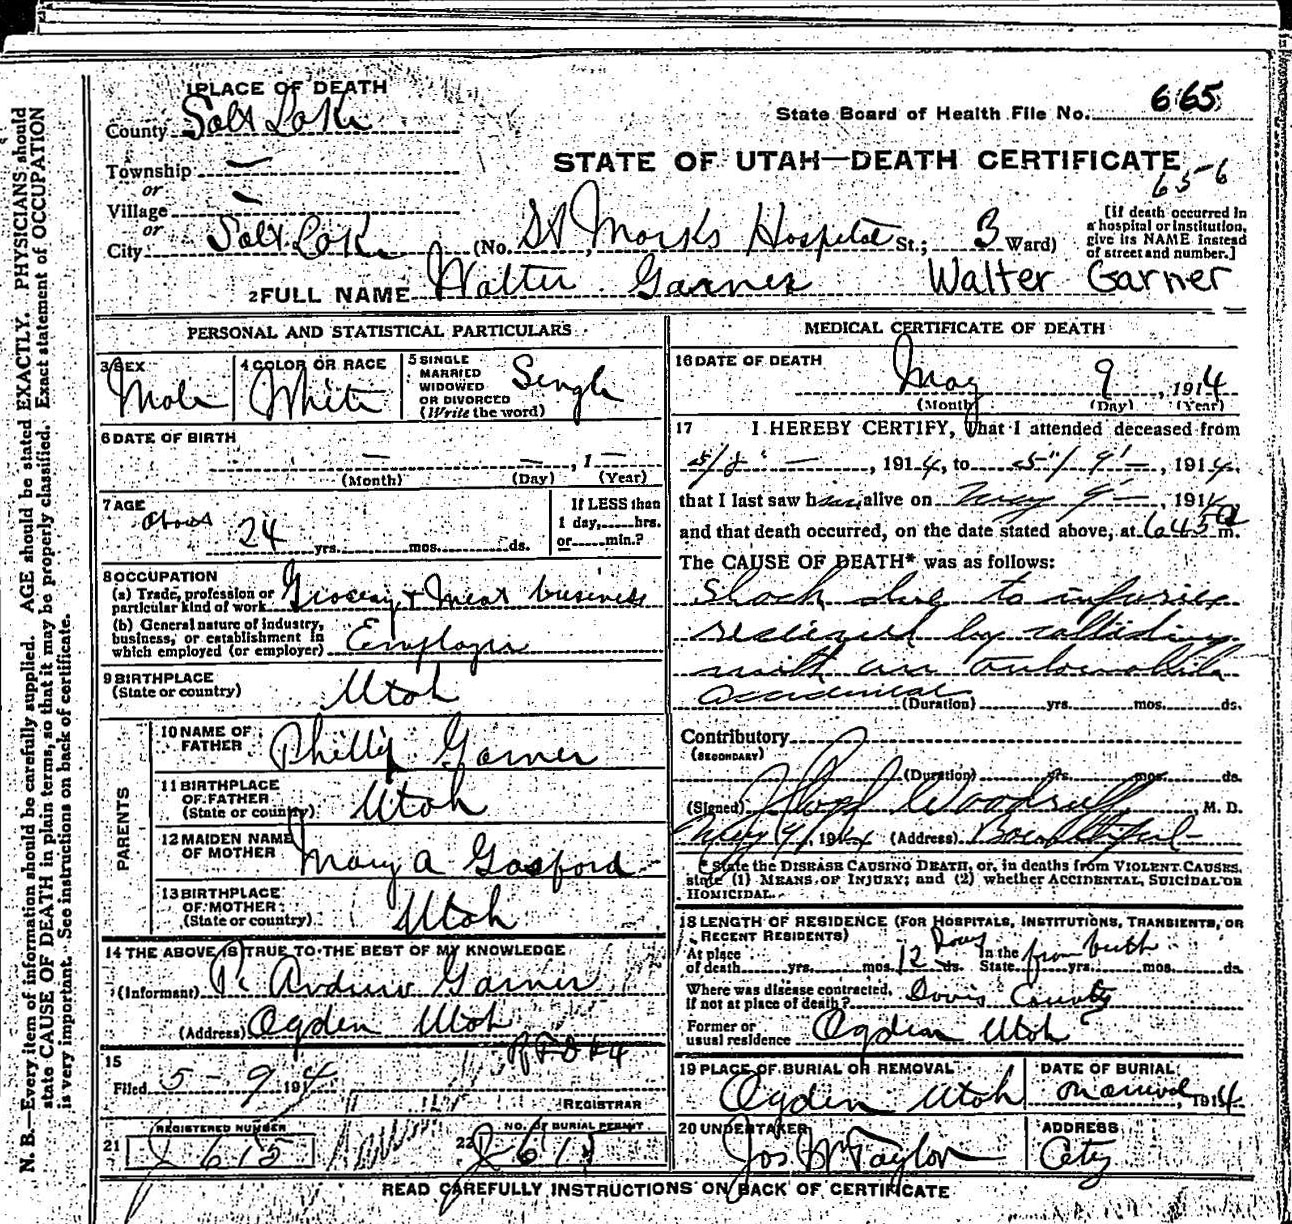 1 PLACE OF DEATH
County Salt Lake
State Board of Health File No. 665
Township —
or
Village —
or
City Salt Lake
STATE OF UTAH—DEATH CERTIFICATE
65-6
(No. St Marks Hospital St.; 3 Ward)
[If death occurred in
a hospital or institution,
give its NAME instead
of street and number.]
2 FULL NAME Walter Garner Walter Garner
PERSONAL AND STATISTICAL PARTICULARS
3 SEX
Male
4 COLOR OR RACE
White
5 SINGLE
MARRIED
WIDOWED
OR DIVORCED
(Write the word)
Single
6 DATE OF BIRTH
— — , 1 —
(Month) (Day) (Year)
7 AGE
About 24 yrs. mos. ds.
If LESS than
1 day, hrs.
or min.?
8 OCCUPATION
(a) Trade, profession or
particular kind of work Grocery & Meat business
(b) General nature of industry,
business, or establishment in
which employed (or employer) Employer
9 BIRTHPLACE
(State or country)
Utah
PARENTS
10 NAME OF
FATHER
Phillip Garner
11 BIRTHPLACE
OF FATHER
(State or country)
Utah
12 MAIDEN NAME
OF MOTHER
Mary A
13 BIRTHPLACE
OF MOTHER
(State or country)
Utah
14 THE ABOVE IS TRUE TO THE BEST OF MY KNOWLEDGE
(Informant) P. Andrew Garner
(Address) Ogden Utah
15
Filed 5-9 1914
REGISTRAR
21 REGISTERED NUMBER
J 615
22 NO. OF BURIAL PERMIT
J-615
MEDICAL CERTIFICATE OF DEATH
16 DATE OF DEATH
May 9 , 1914
(Month) (Day) (Year)
17 I HEREBY CERTIFY, that I attended deceased from
5/8 — , 1914, to 5/9 — , 1914,
that I last saw him alive on May 9 — 1914
and that death occurred, on the date stated above, at 645 a m.
The CAUSE OF DEATH* was as follows:
Shock due to injuries
recieved by colliding
with an automobile
accidental
(Duration) yrs. mos. ds.
Contributory
(SECONDARY)
(Duration) yrs. mos. ds.
(Signed) Woodruff, M. D.
May 9, 1914 (Address) Bountiful
*State the DISEASE CAUSING DEATH, or, in deaths from VIOLENT CAUSES,
state (1) MEANS OF INJURY; and (2) whether ACCIDENTAL, SUICIDAL OR
HOMICIDAL.
18 LENGTH OF RESIDENCE (FOR HOSPITALS, INSTITUTIONS, TRANSIENTS, OR
RECENT RESIDENTS)
At place
of death yrs. mos. 12 ds. In the
State from birth yrs. mos. ds.
Where was disease contracted,
if not at place of death? Davis County
Former or
usual residence Ogden Utah
19 PLACE OF BURIAL OR REMOVAL
Ogden Utah
DATE OF BURIAL
on arrival, 1914
20 UNDERTAKER
Jos Wm Taylor
ADDRESS
City
READ CAREFULLY INSTRUCTIONS ON BACK OF CERTIFICATE
N. B.—Every item of information should be carefully supplied. AGE should be stated EXACTLY. PHYSICIANS should
state CAUSE OF DEATH in plain terms, so that it may be properly classified. Exact statement of OCCUPATION
is very important. See instructions on back of certificate.